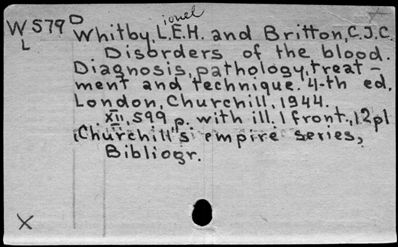 W 579 D
L
ionel
Whitby, L.E.H. and Britton, C.J.C.
Disorders of the blood.
Diagnosis, pathology, treat-
ment and technique. 4-th ed.
London, Churchill, 1944.
XII, 599 p. with ill. 1 front., 12 pl
(Churchill's empire series,
Bibliogr.
X